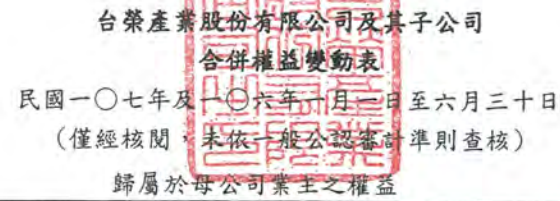 台榮產業股份有限公司及其子公司
合併權益變動表
民國一〇七年及一〇六年一月一日至六月三十日
（僅經核閱，未依一般公認審計準則查核）
歸屬於母公司業主之權益